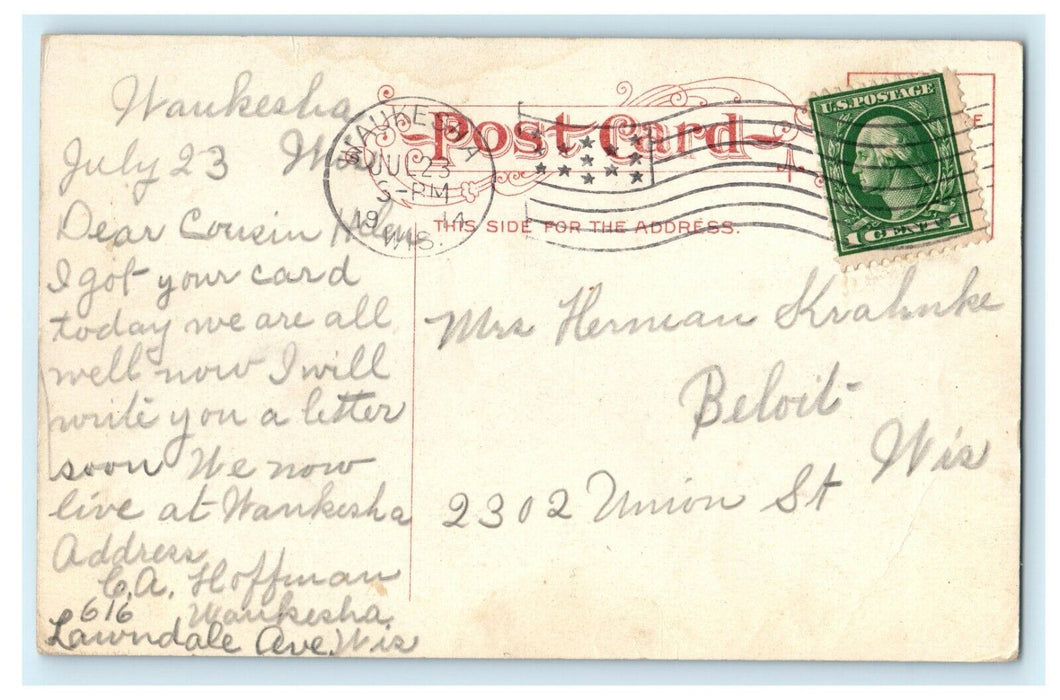 Waukesha
July 23 Wis
Dear Cousin Helen
I got your card
today we are all
well now I will
write you a letter
soon We now
live at Waukesha
Address
C.A. Hoffman
616 Waukesha
Lawndale Ave. Wis
Post Card
THIS SIDE FOR THE ADDRESS.
WAUKESHA
JUL 23
5-PM
19 14
WIS.
U.S. POSTAGE
1 CENT 1
Mrs Herman Krahnke
Beloit
Wis
2302 Union St